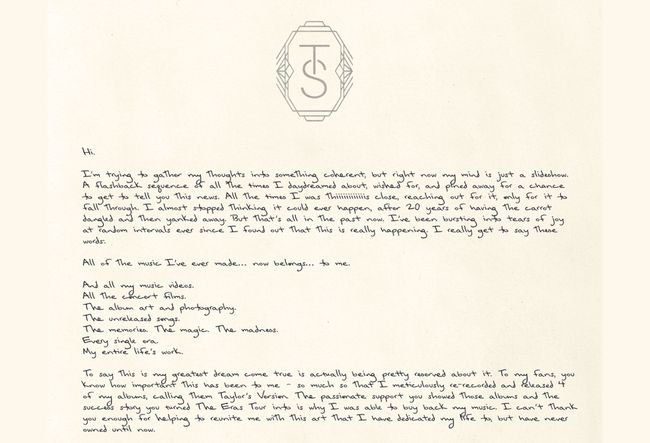 TS
Hi.
I'm trying to gather my thoughts into something coherent, but right now my mind is just a slideshow.
A flashback sequence of all the times I daydreamed about, wished for, and pined away for a chance
to get to tell you this news. All the times I was thiiiiiiiiiiiis close, reaching out for it, only for it to
fall through. I almost stopped thinking it could ever happen, after 20 years of having the carrot
dangled and then yanked away. But that's all in the past now. I've been bursting into tears of joy
at random intervals ever since I found out that this is really happening. I really get to say these
words:
All of the music I've ever made... now belongs... to me.
And all my music videos.
All the concert films.
The album art and photography.
The unreleased songs.
The memories. The magic. The madness.
Every single era.
My entire life's work.
To say this is my greatest dream come true is actually being pretty reserved about it. To my fans, you
know how important this has been to me - so much so that I meticulously re-recorded and released 4
of my albums, calling them Taylor's Version. The passionate support you showed those albums and the
success story you turned The Eras Tour into is why I was able to buy back my music. I can't thank
you enough for helping to reunite me with this art that I have dedicated my life to, but have never
owned until now.